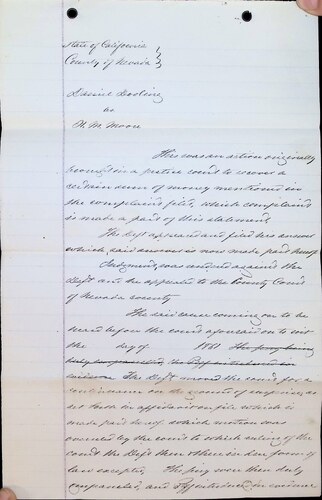 State of California }
County of Nevada }
Daniel
vs
N. M. Moore
This was an action originally
brought in a justice court to recover a
certain sum of money mentioned in
the complaint filed, which complaint
is made a part of this statement
The deft appeared and filed his answer
which said answer is now made part hereof
Judgment was against the
deft and he appealed to the County Court
of Nevada county
The said cause coming on to be
heard before the court upon to wit
the day of 1861 The jury being
duly the Pltf
The deft moved the court for a
continuance on the of as
set forth in affidavit on file which is
made part hereof which motion was
overruled by the court to which ruling of the
court the deft then & there in due form of
law excepted The jury were then duly
empanneled, and Pltf in evidence